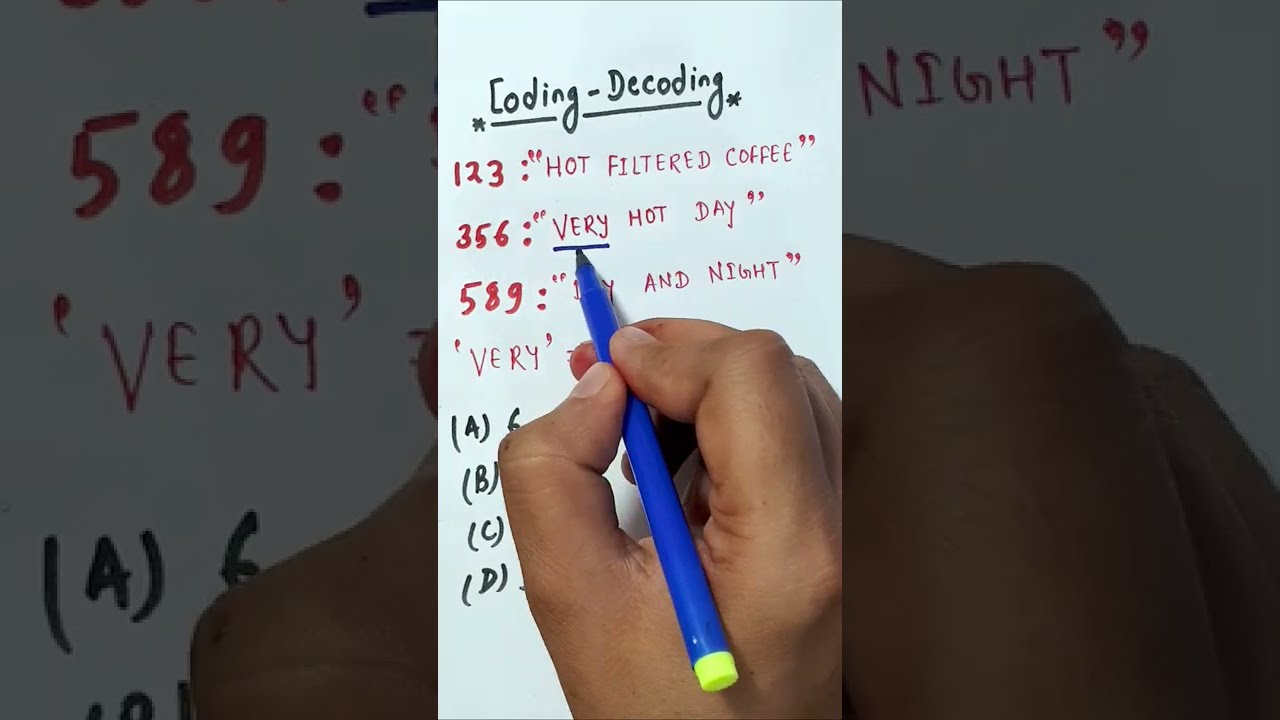 *Coding-Decoding*
123 : "HOT FILTERED COFFEE"
356 : "VERY HOT DAY"
589 : " AND NIGHT"
'VERY' =
(A) 6
(B)
(C)
(D)